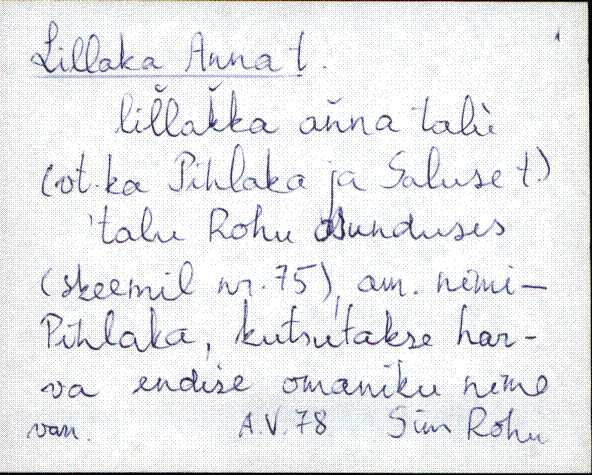 Lillaka Anna t.
lil̆lak̆ka ăn̆na talu
(vt. ka Pihlaka ja Saluse t.)
talu Rohu asunduses
(skeemil nr. 75), am. nimi –
Pihlaka, kutsutakse har-
va endise omaniku nime
van. A.V. 78 Sim Rohu